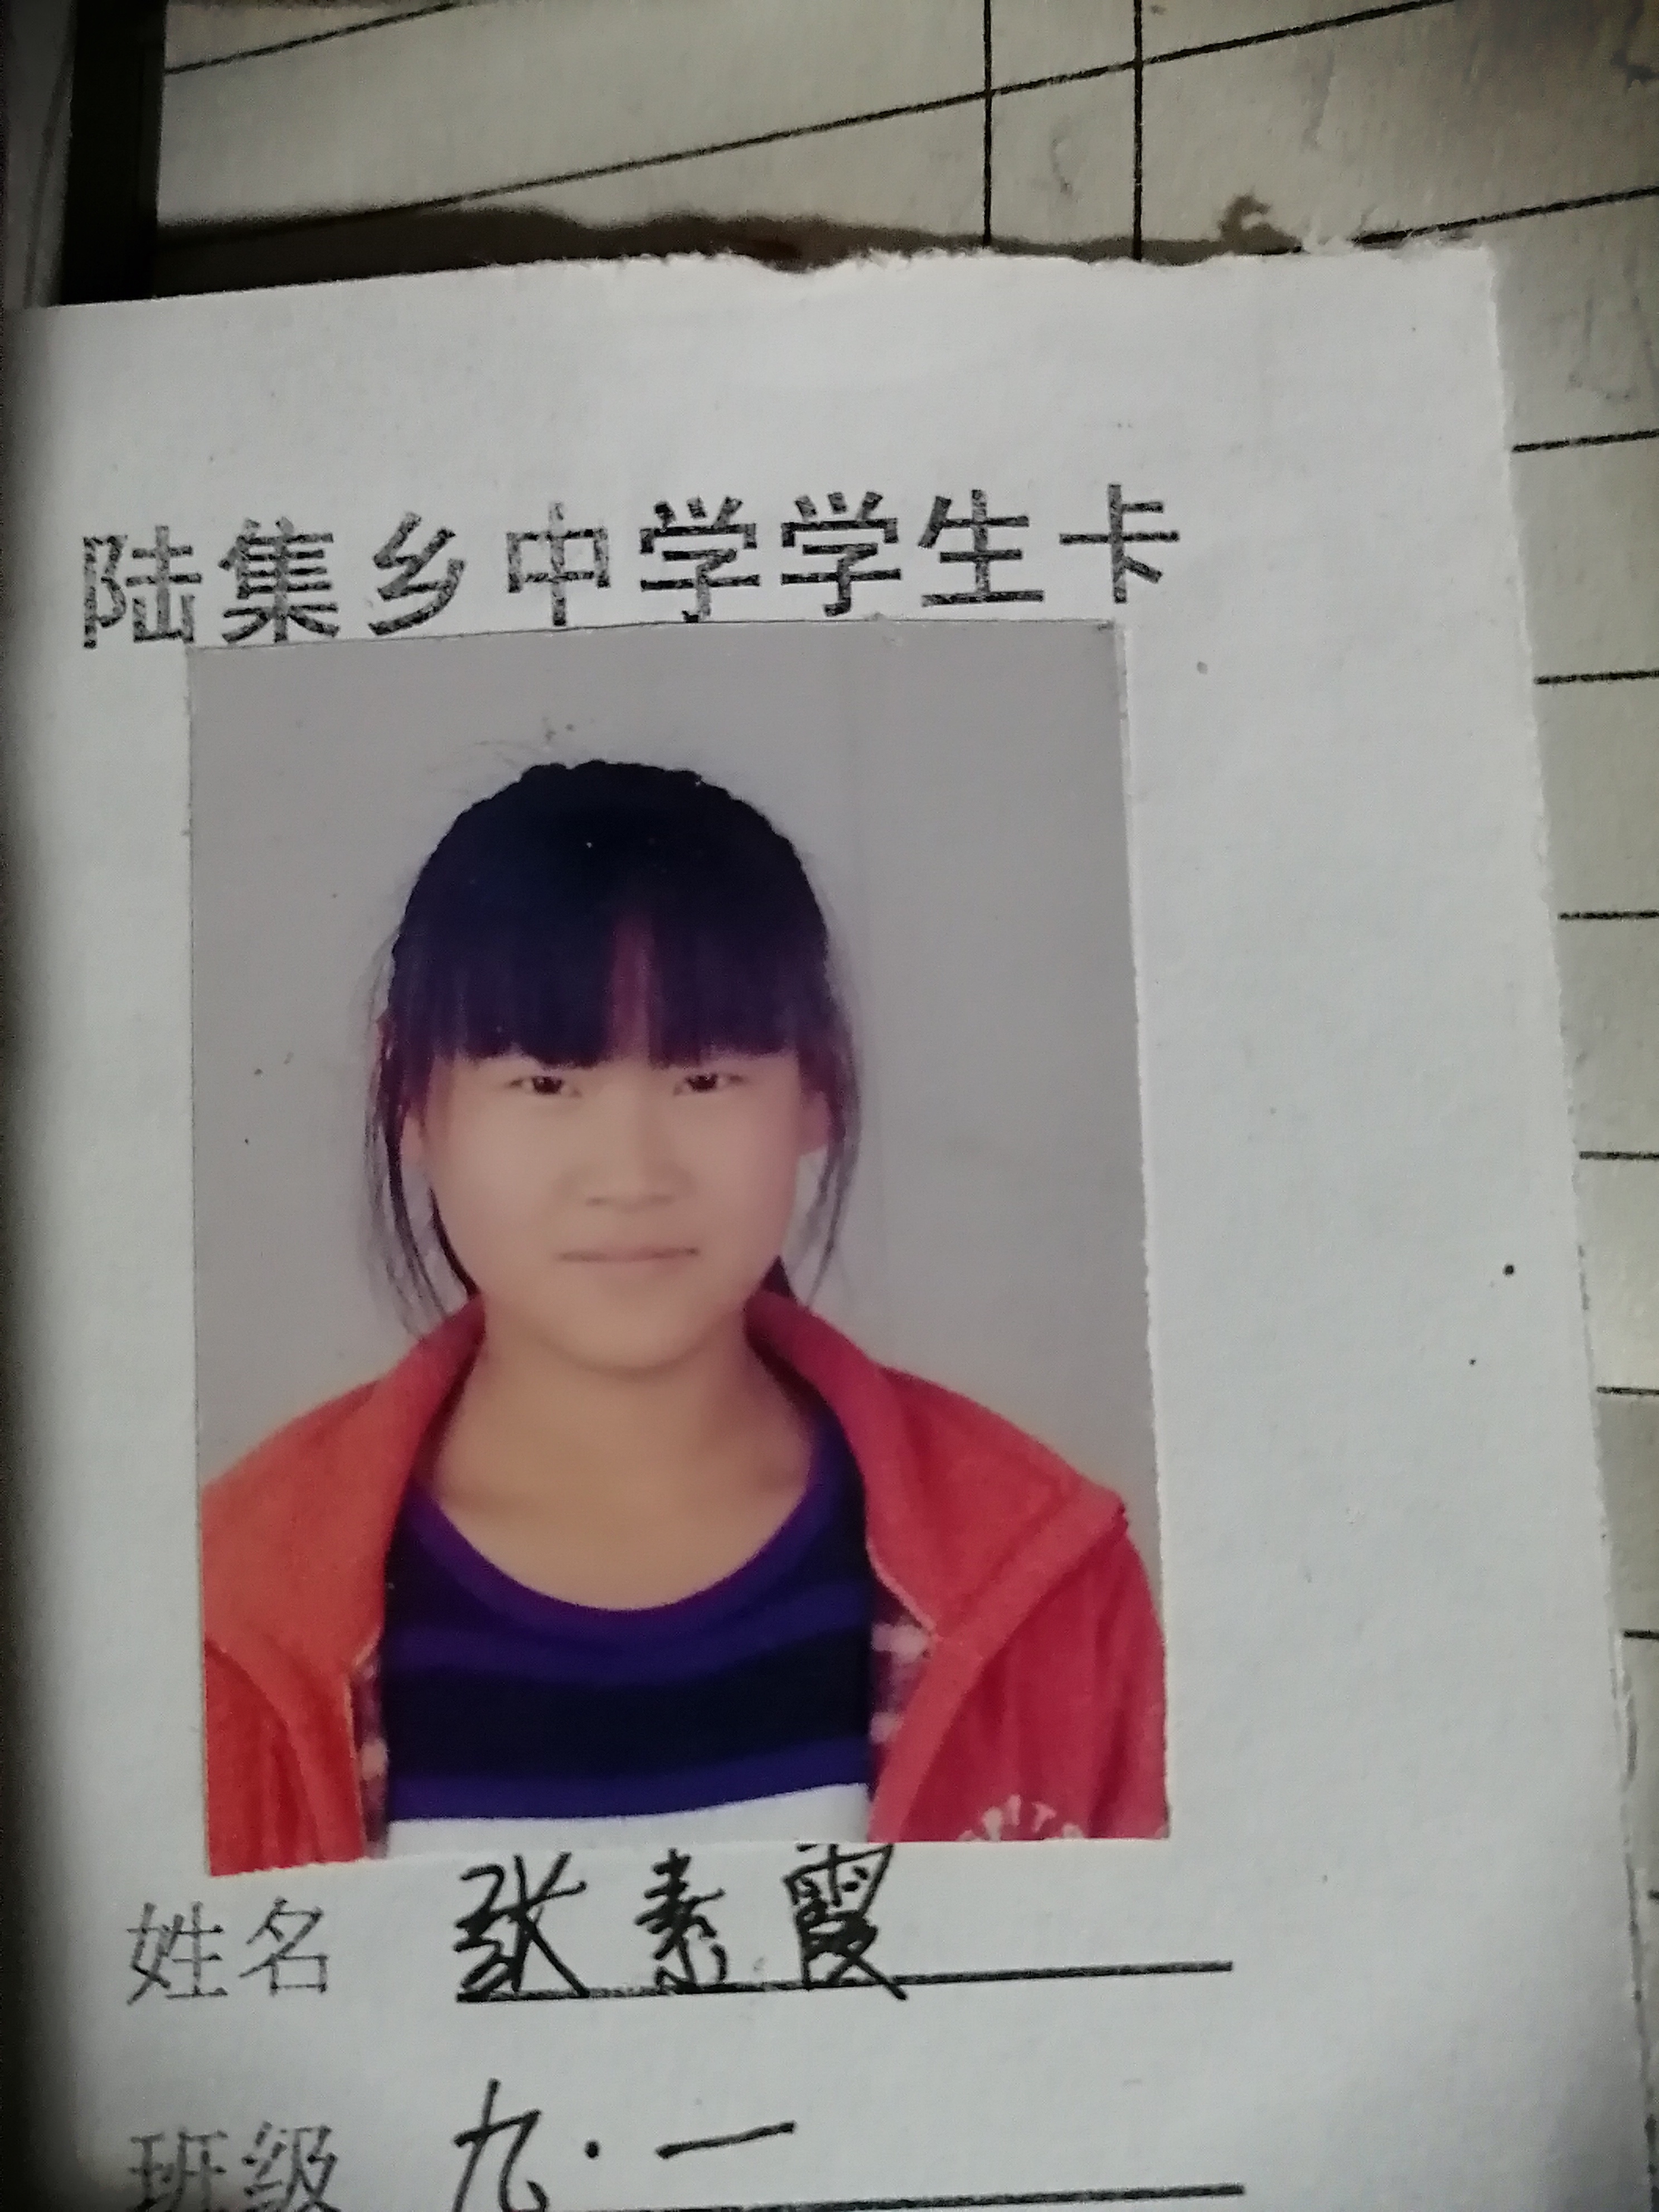 陆集乡中学学生卡
姓名 张素霞
班级 九·一